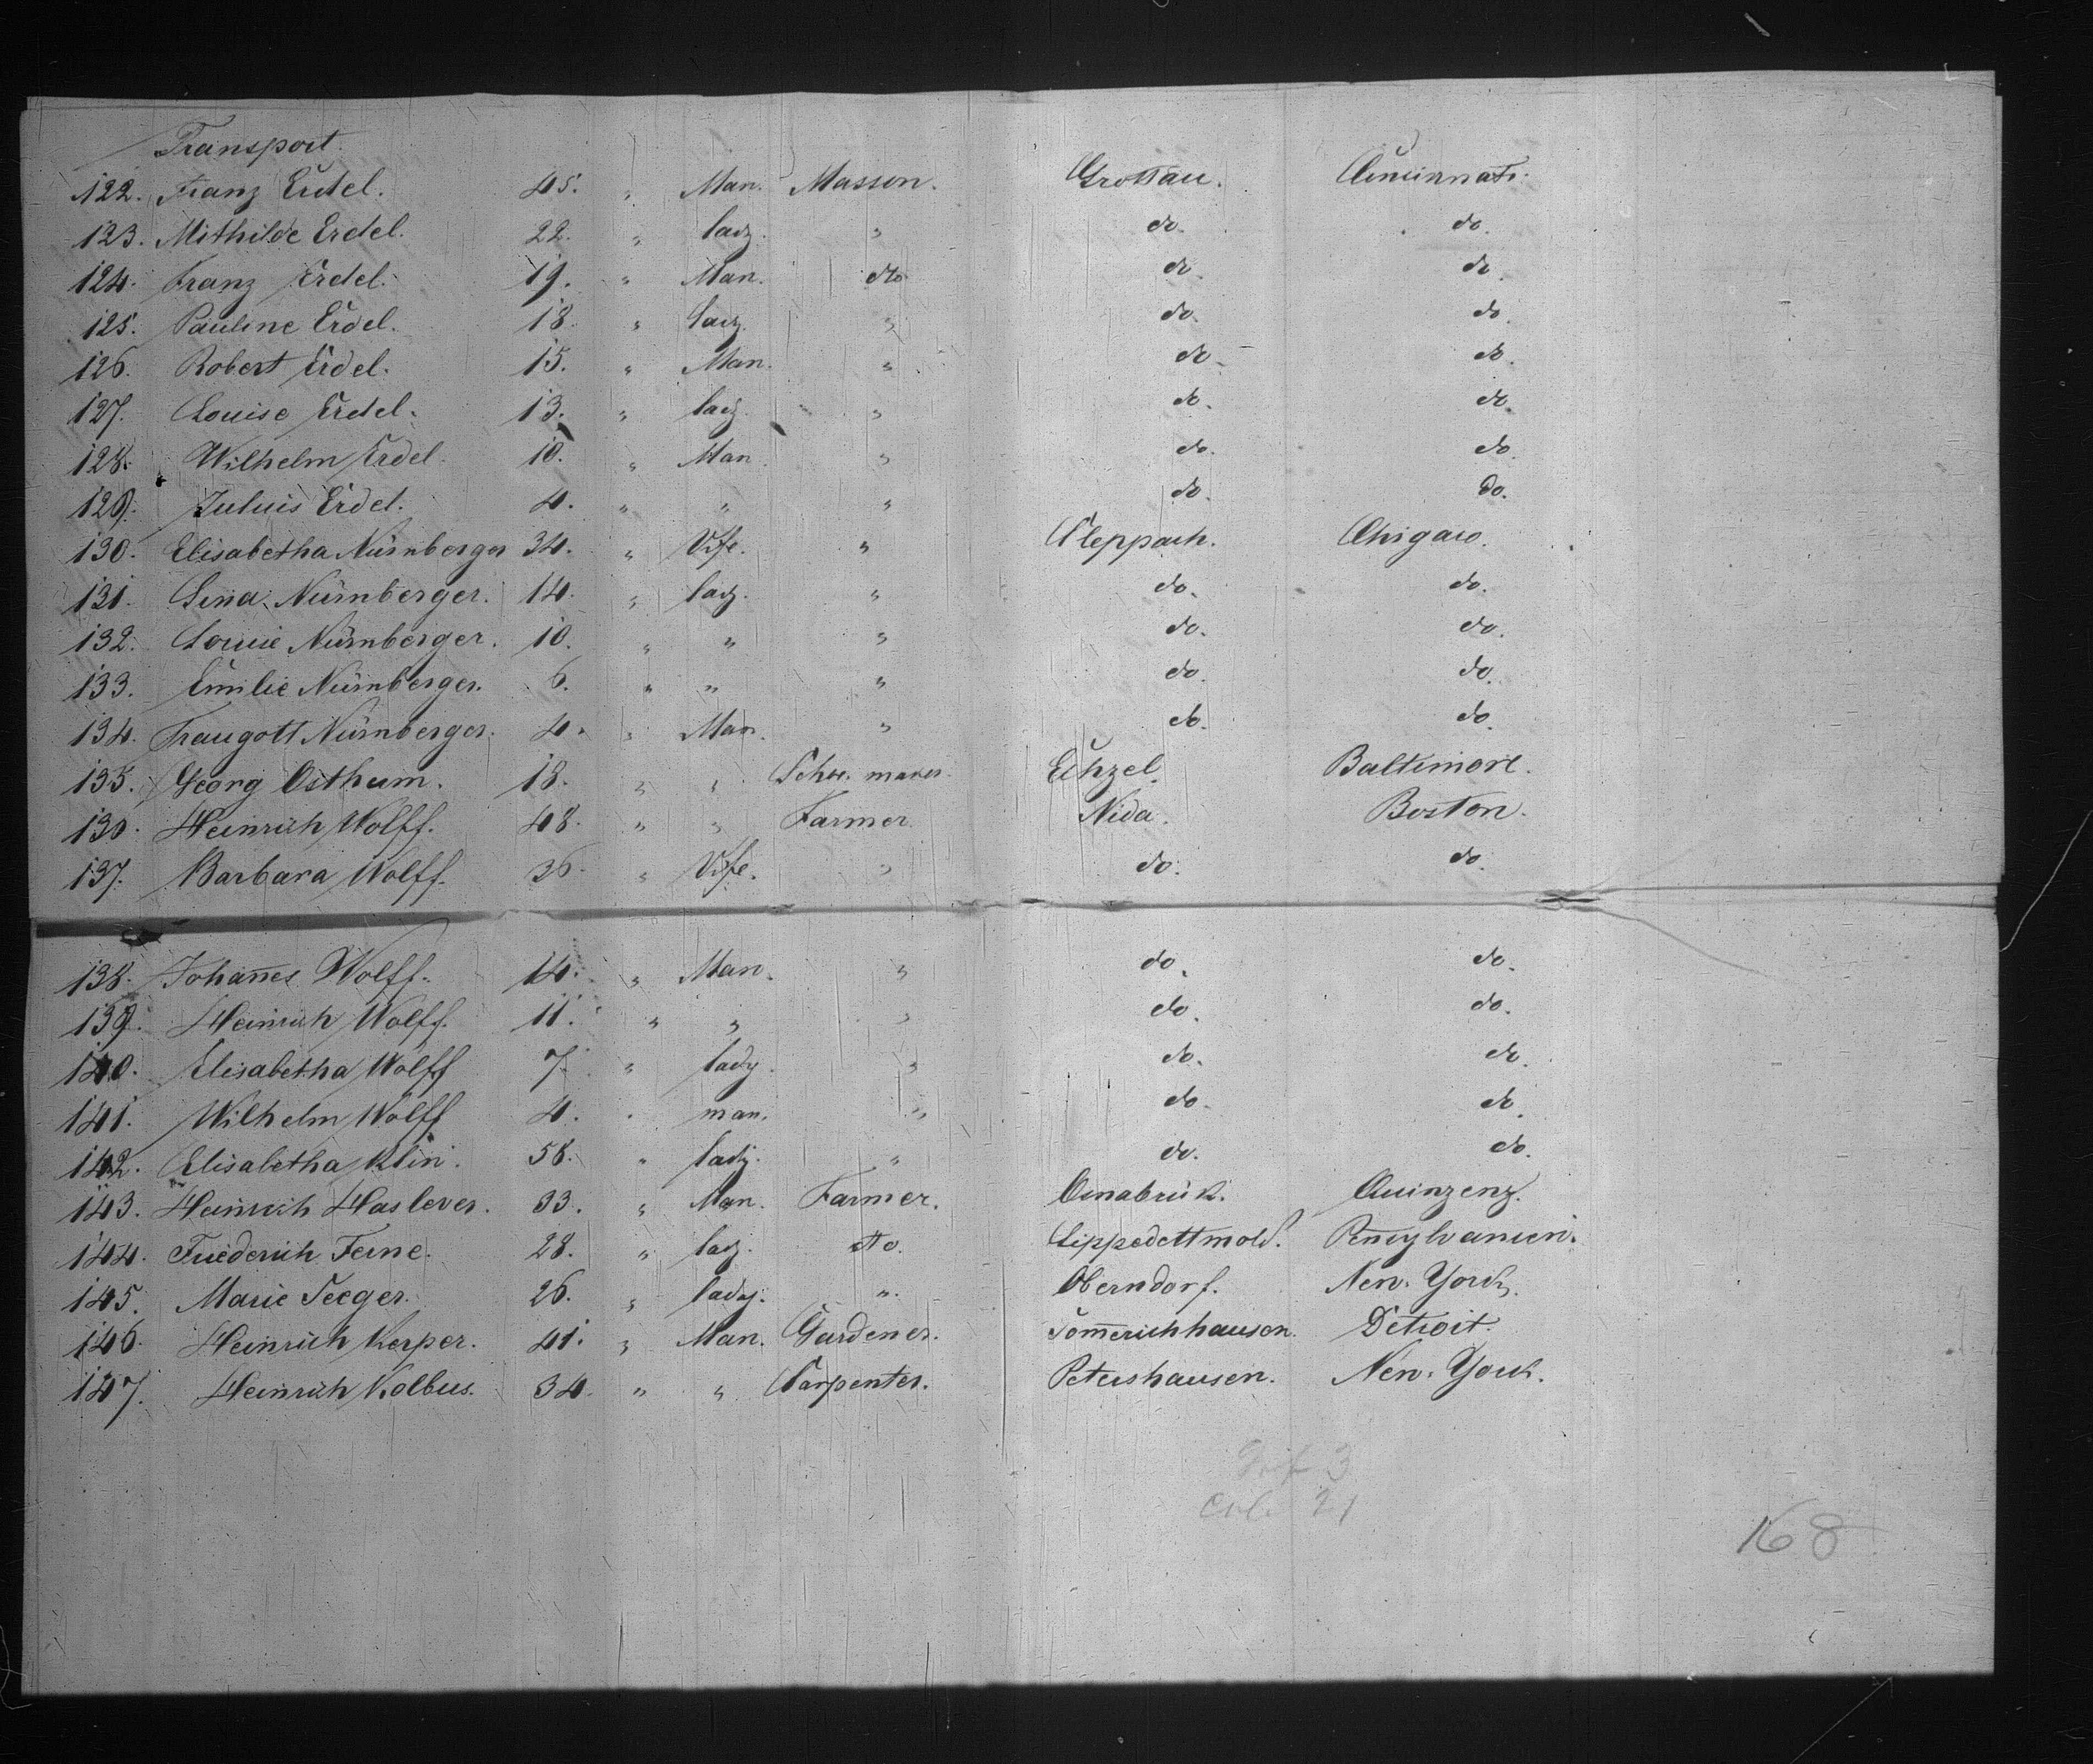 Transport.
122. Franz Erdel. 45. " Man. Masson. Grottau. Cincinnati.
123. Mithilde Erdel. 22. " lady. " do. do.
124. Franz Erdel. 19. " Man. dto do. do.
125. Pauline Erdel. 18. " lady. " do. do.
126. Robert Erdel. 15. " Man. " do. do.
127. Louise Erdel. 13. " lady. " do. do.
128. Wilhelm Erdel. 10. " Man. " do. do.
129. Juluis Erdel. 4. " " " do. do.
130. Elisabetha Nürnberger 34. " Vife. " Cleppach. Chigaco.
131. Lina Nürnberger. 14. " lady. " do. do.
132. Louie Nürnberger. 10. " " " do. do.
133. Emilie Nürnberger. 6. " " " do. do.
134. Traugott Nürnberger. 4. " Man. " do. do.
135. Georg Osthum. 18. " " maker. Echzel. Baltimore.
136. Heinrich Wolff. 48. " " Farmer. Nida. Boston.
137. Barbara Wolff. 36. " Vife. " do. do.
138. Johan̄es Wolff. 14. " Man. " do. do.
139. Heinrich Wolff. 11. " " " do. do.
140. Elisabetha Wolff 7. " lady. " do. do.
141. Wilhelm Wolff 4. " man. " do. do.
142. Elisabetha Klin. 58. " lady. " do. do.
143. Heinrich Haslever. 33. " Man. Farmer. Osnabrük. Quinzenz.
144. Friederich Ferne. 28. " lady. dto. Lippedettmold. Pen̄sylvanien.
145. Marie Seeger. 26. " lady. " Oberndorf. New-York.
146. Heinrich Kerper. 41. " Man. Gardener. Som̄erichhausen. Detroit.
147. Heinrich Kolbus. 34. " " Carpenter. Petershausen. New-York.
3
21
168